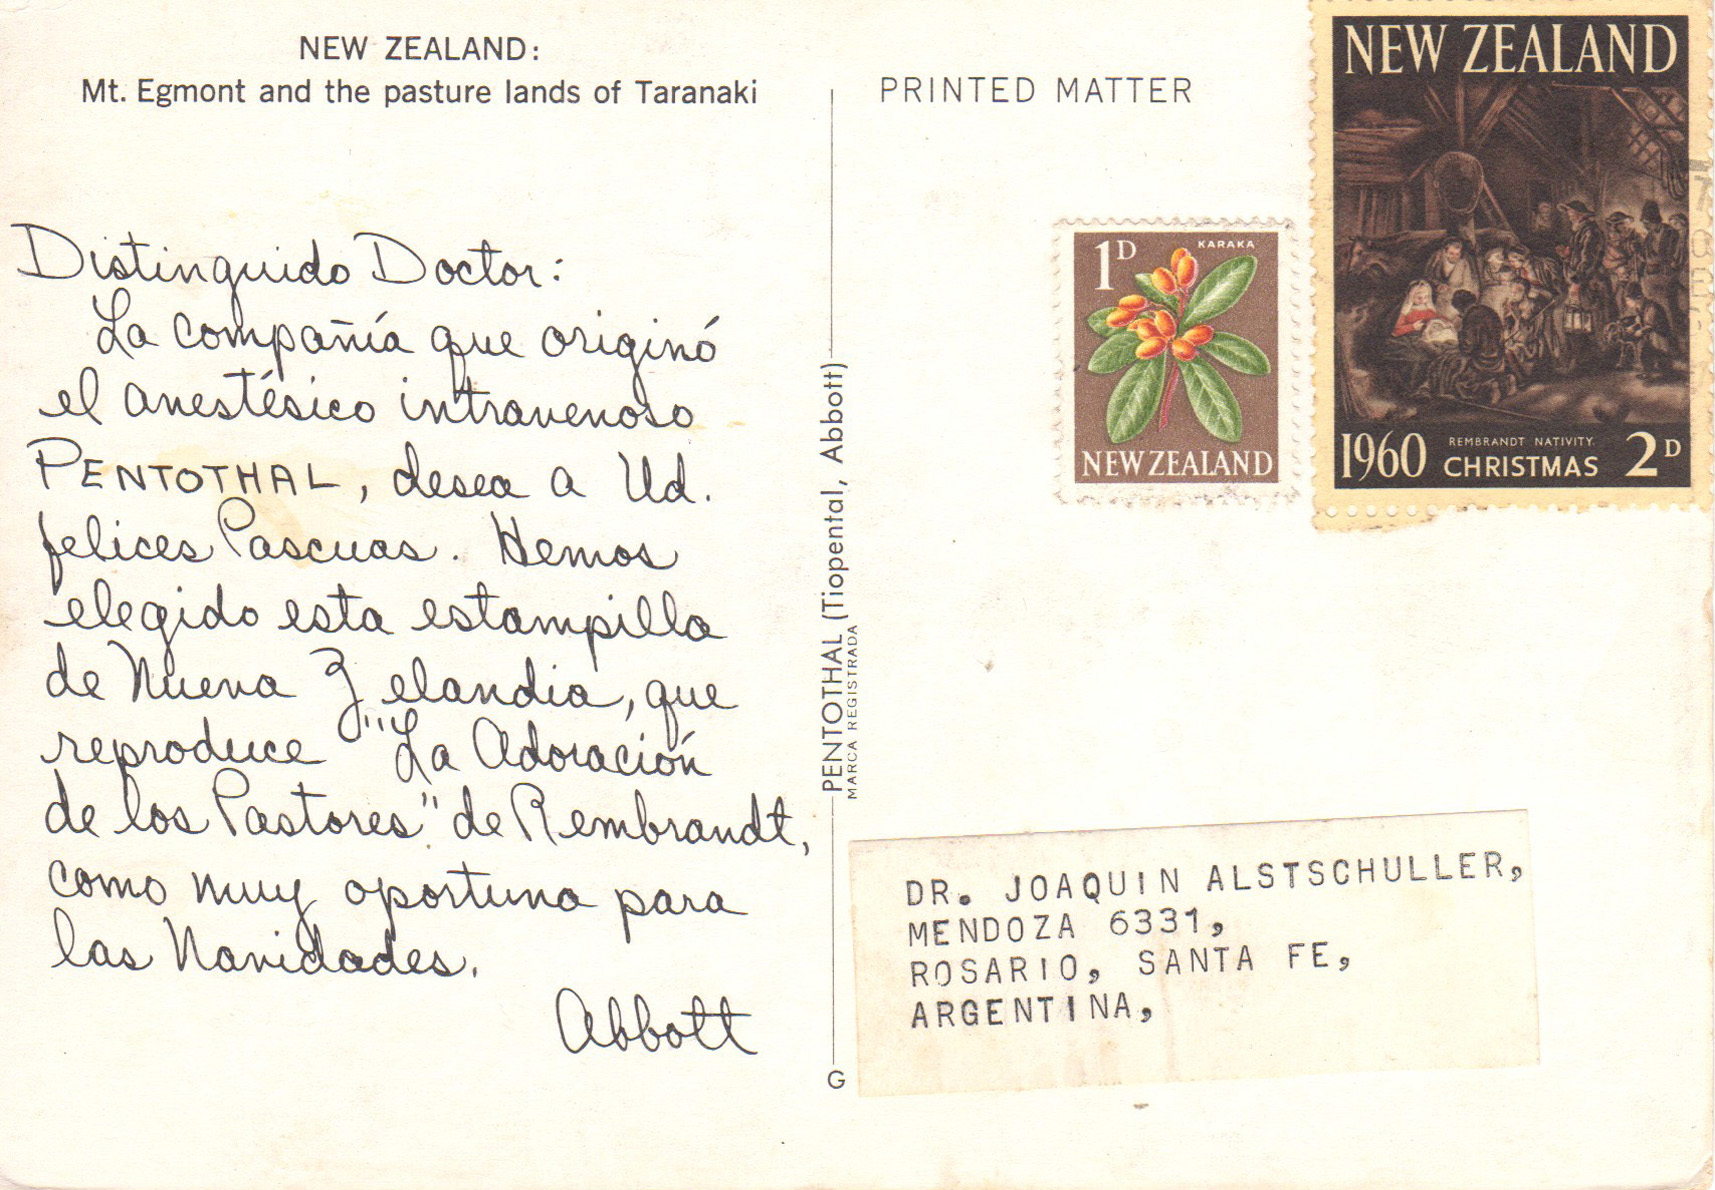 NEW ZEALAND:
Mt. Egmont and the pasture lands of Taranaki
Distinguido Doctor:
La compañía que originó
el anestésico intravenoso
PENTOTHAL, desea a Ud.
felices Pascuas. Hemos
elegido esta estampilla
de Nueva Zelandia, que
reproduce "La Adoración
de los Pastores" de Rembrandt,
como muy oportuna para
las Navidades.
Abbott
PENTOTHAL (Tiopental, Abbott)
MARCA REGISTRADA
G
PRINTED MATTER
1D
KARAKA
NEW ZEALAND
NEW ZEALAND
1960
REMBRANDT NATIVITY.
CHRISTMAS
2D
DR. JOAQUIN ALSTSCHULLER,
MENDOZA 6331,
ROSARIO, SANTA FE,
ARGENTINA,